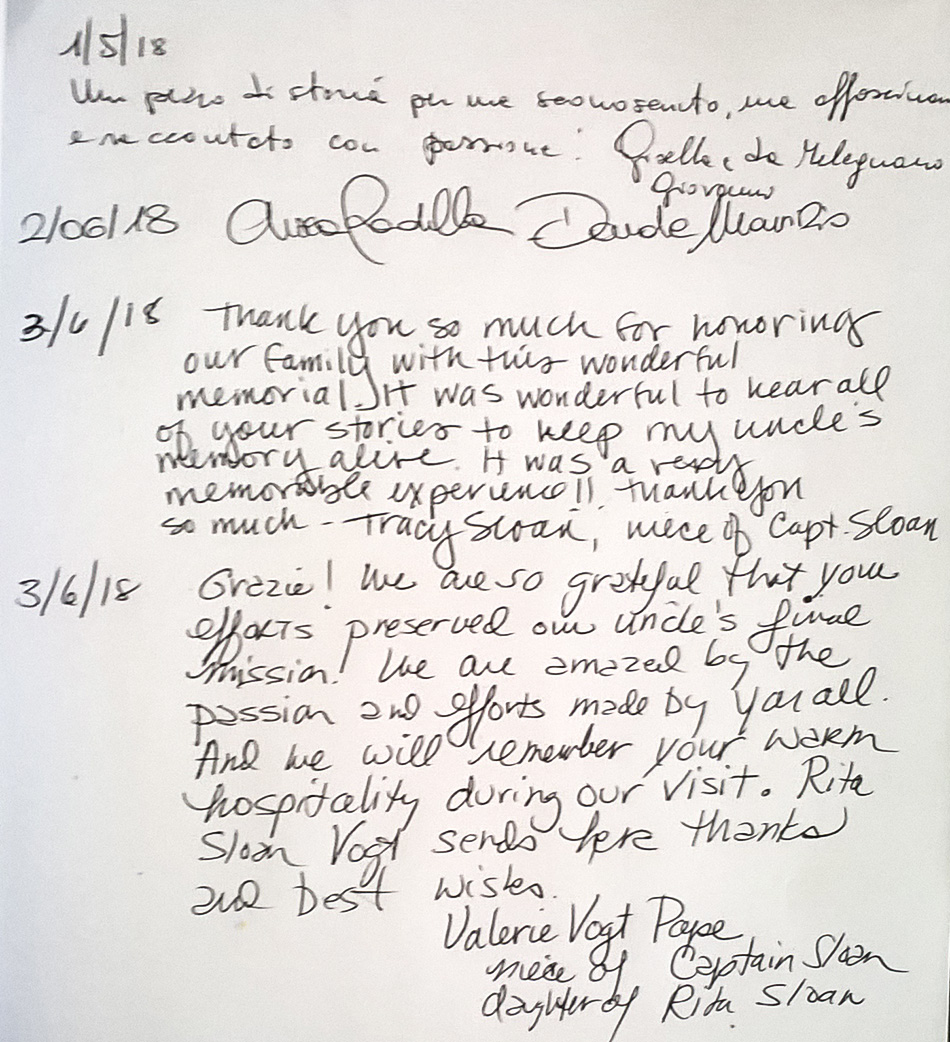 1/5/18
Un pezzo di storia per me sconosciuto, ma
e raccontato con passione! Gisella e da Melegnano
2/06/18
3/6/18 Thank you so much for honoring
our family with this wonderful
memorial. It was wonderful to hear all
of your stories to keep my uncle's
memory alive. It was a very
memorable experience!! thank you
so much - Tracy Sloan, niece of Capt. Sloan
3/6/18 Grazie! We are so grateful that your
efforts preserved our uncle's final
mission! We are amazed by the
passion and efforts made by you all.
And we will remember your warm
hospitality during our visit. Rita
Sloan Vogt sends here thanks
and best wishes.
Valerie Vogt Pape
niece of Captain Sloan
daughter of Rita Sloan